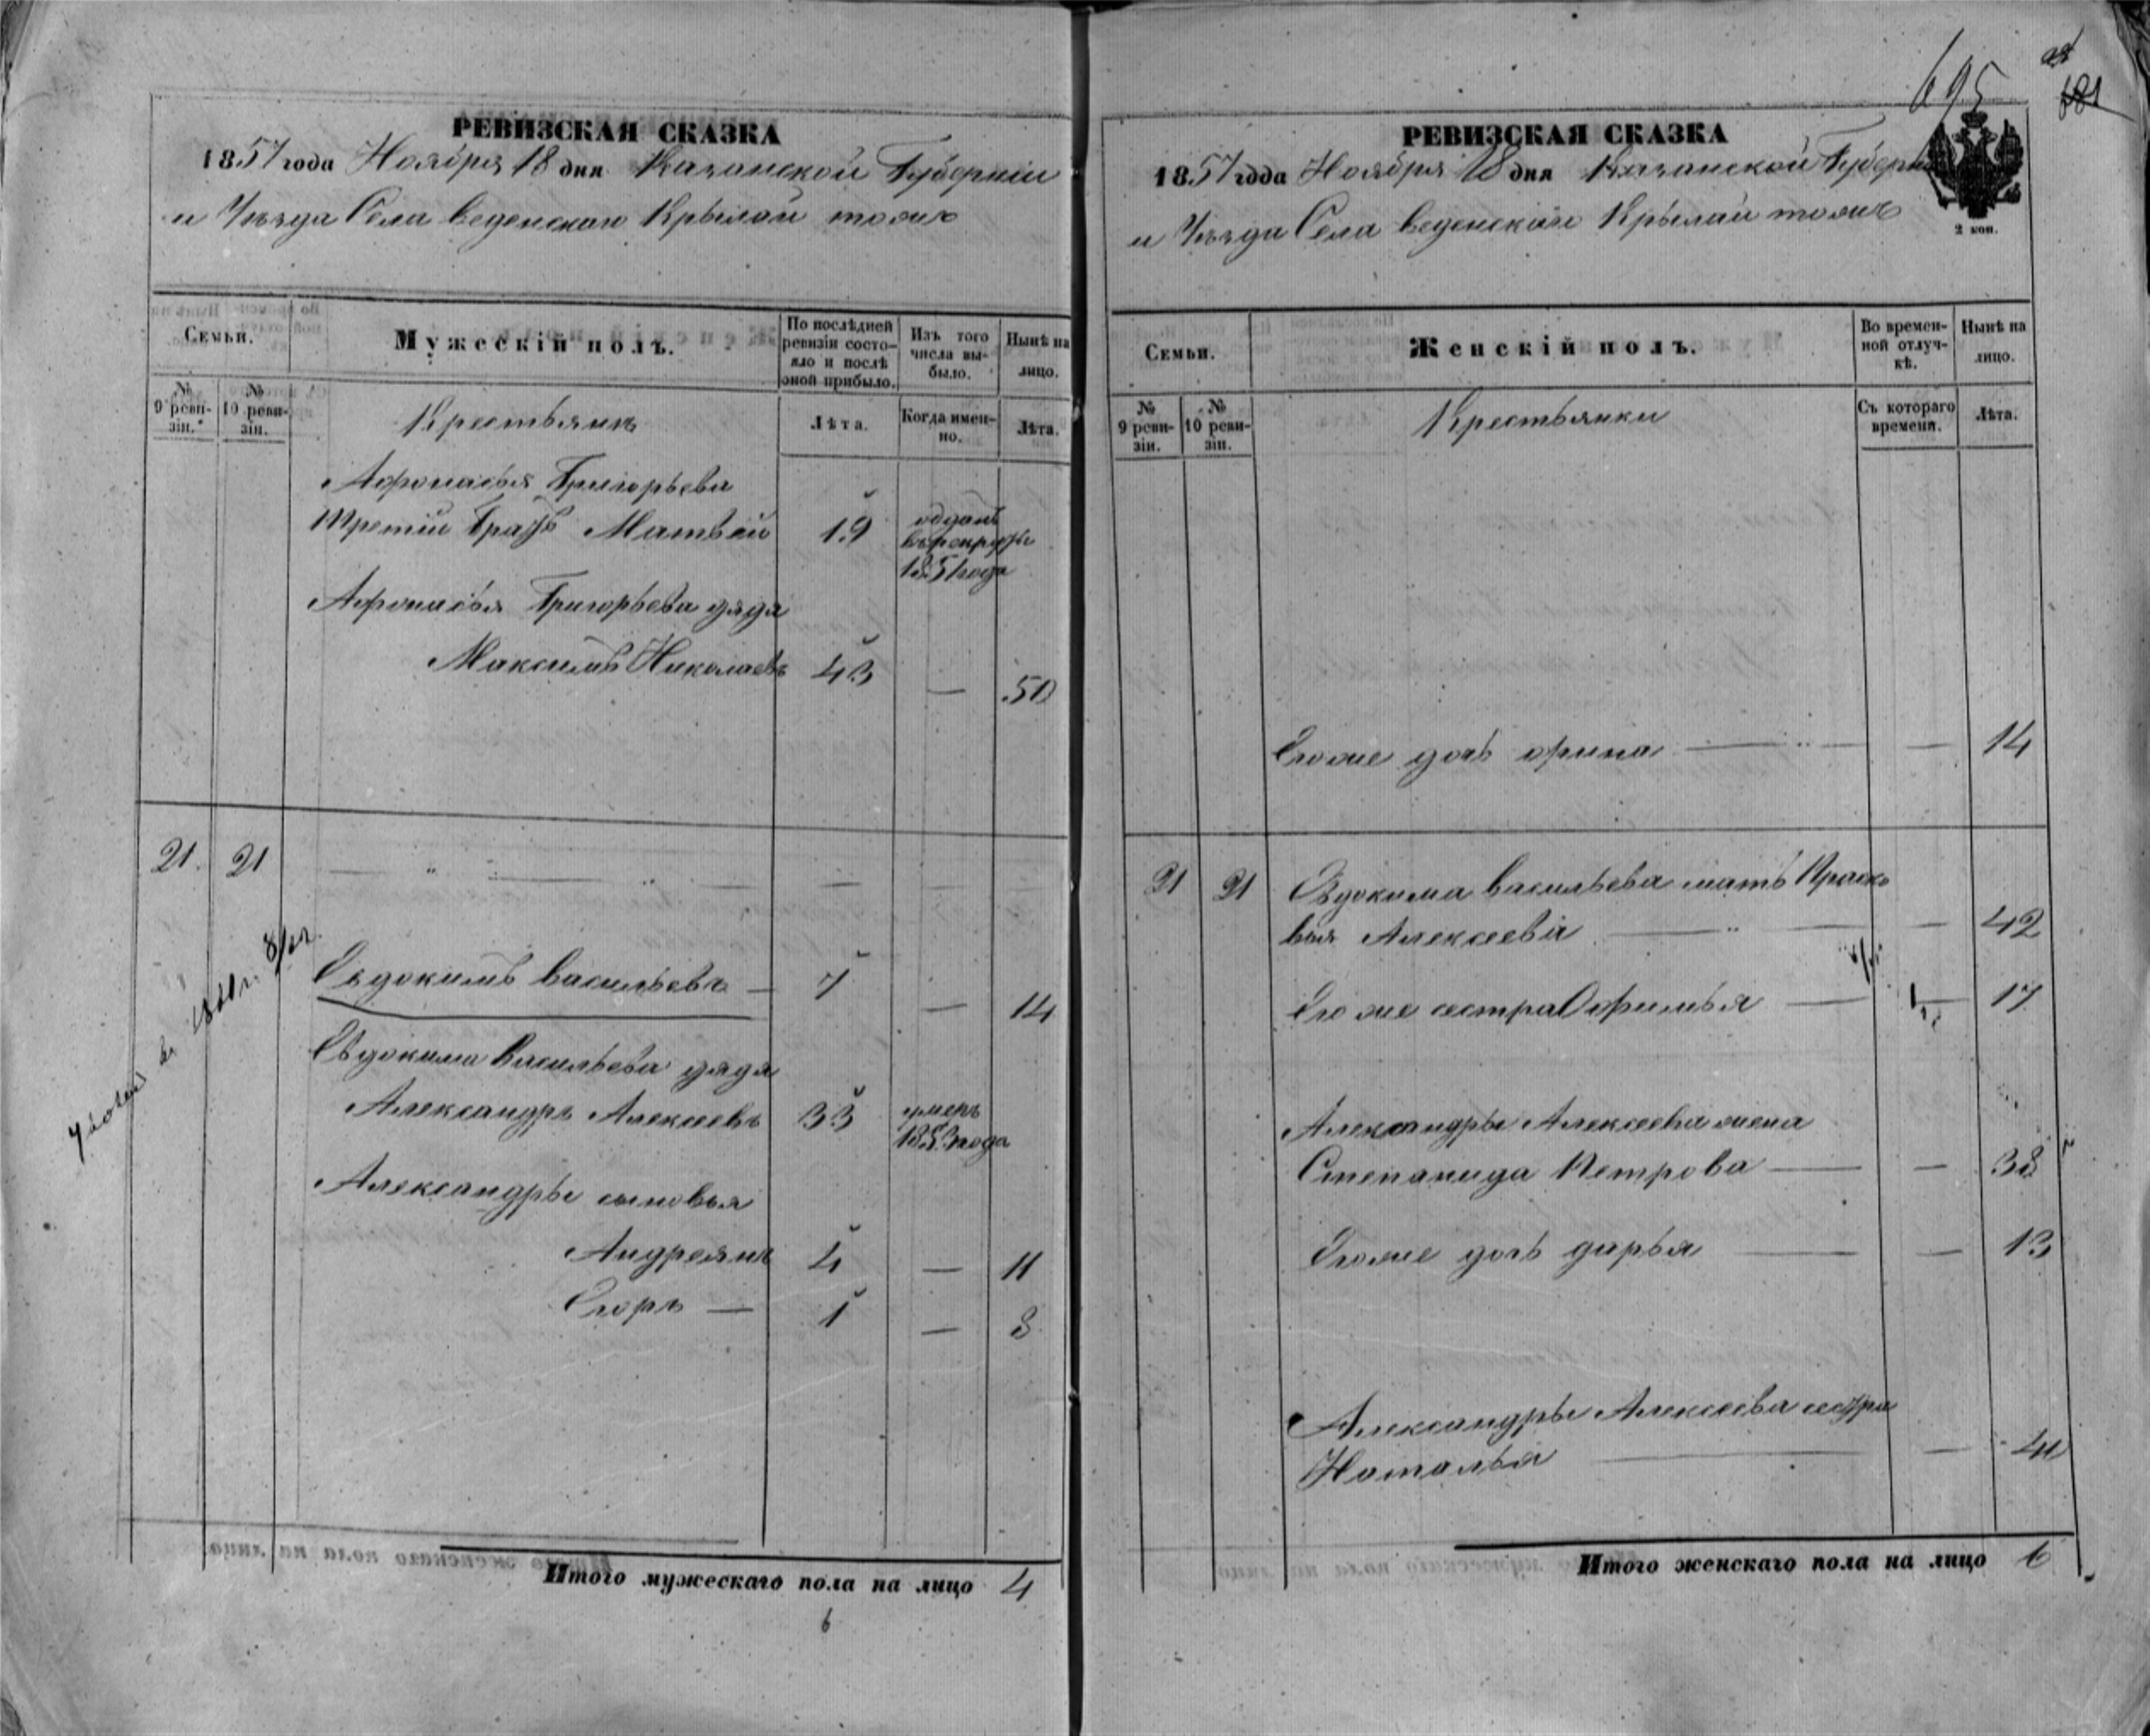 695
681
РЕВИЗСКАЯ СКАЗКА
1857 года Ноября 18 дня Казанской Губерніи
и Уѣзда Села Веденскаго Крылай тожъ
Семьи.
Мужескій полъ.
По послѣдней ревизіи состояло и послѣ оной прибыло.
Изъ того числа выбыло.
Нынѣ на лицо.
№ 9 ревизіи.
№ 10 ревизіи.
Крестьянъ
Лѣта.
Когда именно.
Лѣта.
Афонасья Григорьева
третій братъ Матвей 19 отданъ въ рекруты 1851 года
Афонасья Григорьева дядя
Максимъ Николаевъ 43 — 50
21. 21
Евдокимъ Васильевъ — 7 — 14
Евдокима Васильева дядя
Александръ Алексеевъ 33 умеръ 1853 года
Александры сыновья
Андреянъ 4 — 11
Егоръ — 1 — 8
Итого мужескаго пола на лицо 4
6
РЕВИЗСКАЯ СКАЗКА
1857 года Ноября 18 дня Казанской Губерніи
и Уѣзда Села Веденскаго Крылай тожъ
2 коп.
Семьи.
Женскій полъ.
Во временной отлучкѣ.
Нынѣ на лицо.
№ 9 ревизіи.
№ 10 ревизіи.
Крестьянки
Съ котораго времени.
Лѣта.
Егоже дочь орина — — 14
21 21 Евдокима Васильева мать Праско
вья Алексеева — — 42
Егоже сестра Офимья — 17
Александры Алексеева жена
Степанида Петрова — — 38
Егоже дочь дарья — — 13
Александры Алексеева сестра
Наталья — —
Итого женскаго пола на лицо 6